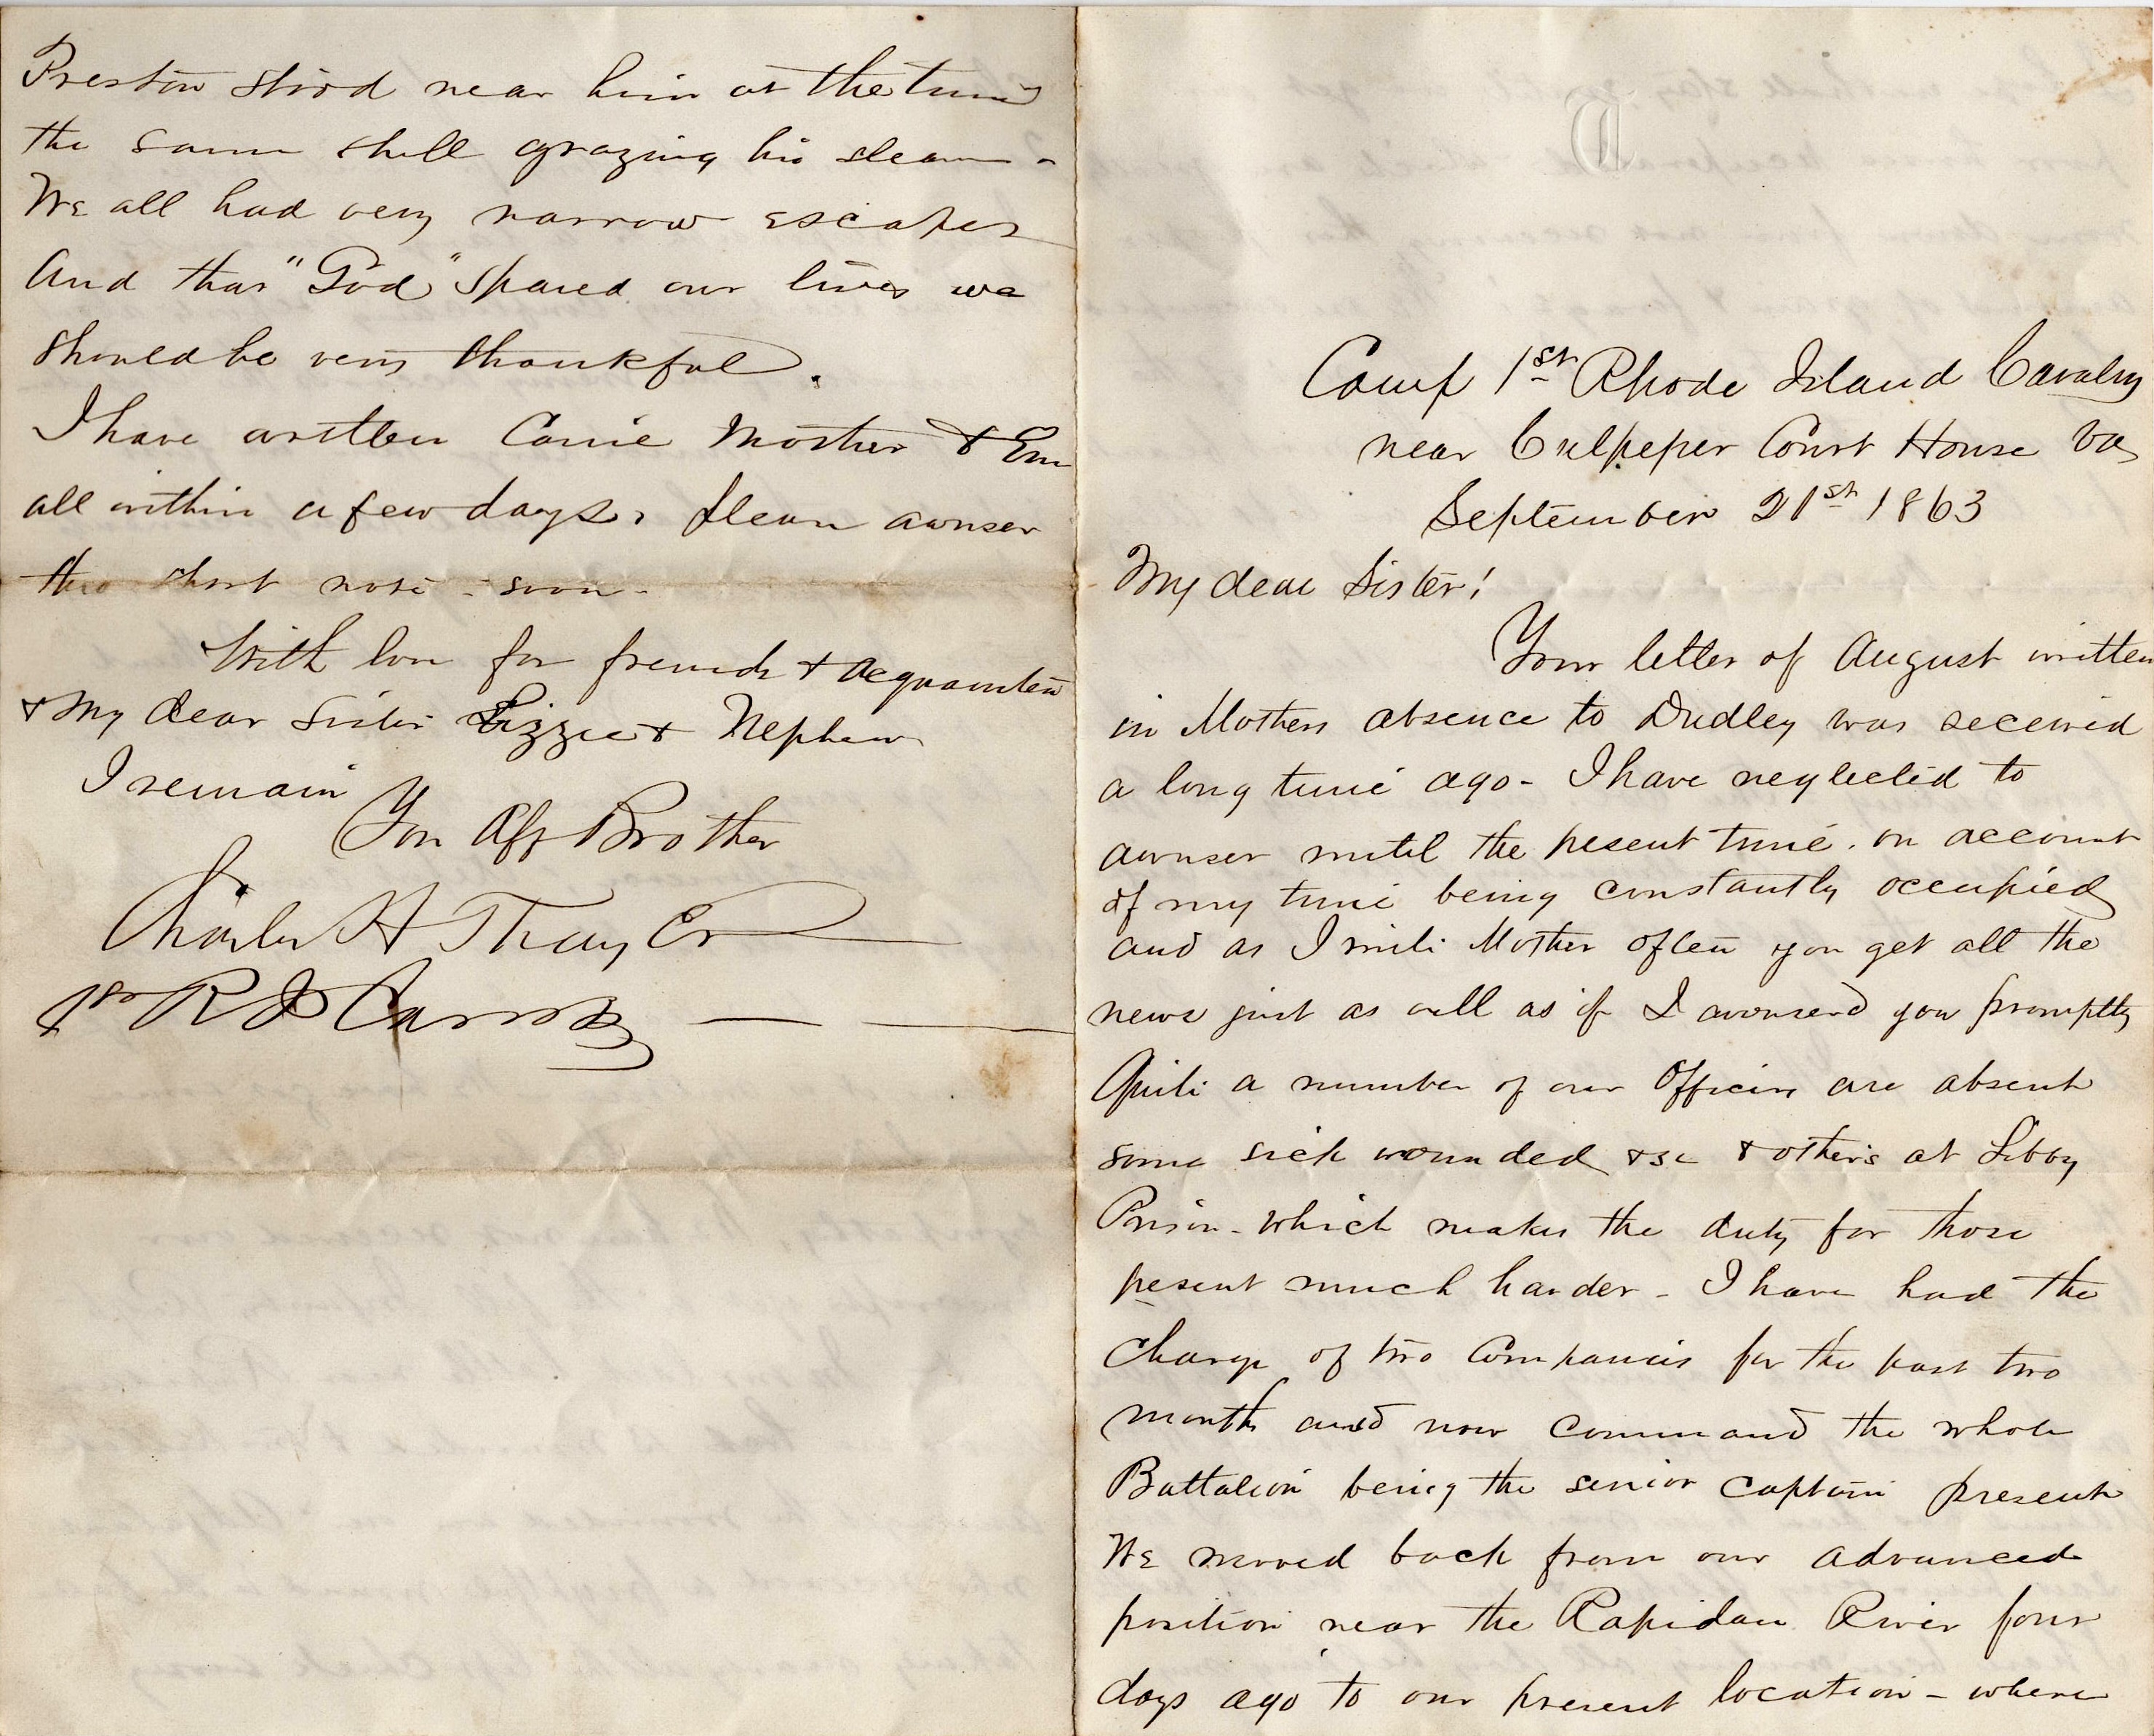 Camp 1st Rhode Island Cavalry
near Culpeper Court House Va
September 21st 1863
My dear Sister!
Your letter of August written
in Mothers absence to Dudley was received
a long time ago - I have neglected to
awnser until the pesent time. on account
of my time being constantly occupied
and as I write Mother often you get all the
news just as well as if I awnserd you promptly
Quite a number of our Officers are absent
some sick wounded &c & others at Libby
Prison - which makes the duty for those
pesent much harder - I have had the
charge of two Companies for the past two
month and now command the whole
Battalion being the senior captain present
We moved back from our advanced
position near the Rapidan River four
days ago to our present location - where
Preston stood near him at the time
the same shell grazing his
We all had very narrow escapes
And that "God" spared our lives we
should be very thankful.
I have written Carrie Mother & Em
all within a few days. Please awnser
this short note - soon -
With love for friends &
& my dear Sister Lizzie & Nephew
I remain
You Aff Brother
Charles H Thayer
1st R I Cavalry